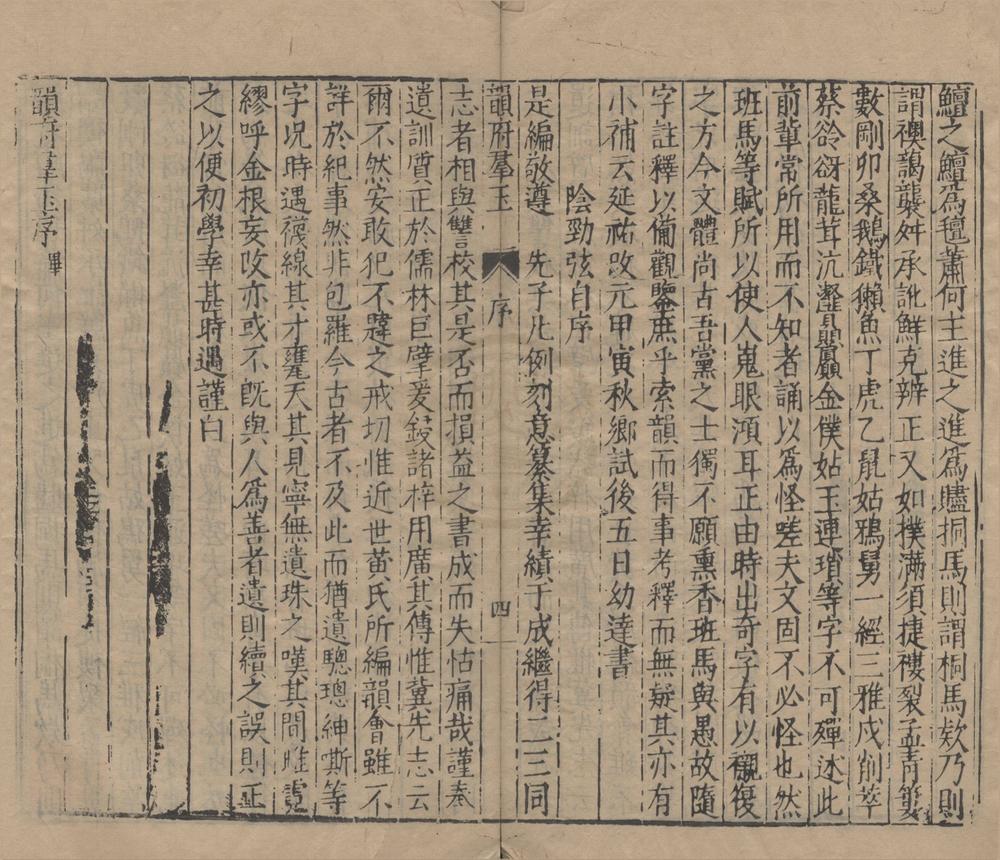 鱣之鱣爲氊蕭何主進之進爲贐挏馬則謂桐馬欵乃則
謂襖靄襲舛承訛鮮克辨正又如撲滿須捷褸裂孟青篗
數剛卯桑鵝鐵獺魚丁虎乙鼠姑鴉舅一經三雅戍削萃
蔡谽谺龍茸沆瀣贔屭金僕姑玉連瑣等字不可殫述此
前輩常所用而不知者誦以爲怪嗟夫文固不必怪也然
班馬等賦所以使人嵬眼澒耳正由時出奇字有以襯複
之方今文體尚古吾黨之士獨不願熏香班馬與愚故隨
字註釋以備觀鑒庶乎索韻而得事考釋而無疑其亦有
小補云延祐改元甲寅秋鄉試後五日幼達書
陰勁弦自序
是編敬遵 先子凡例刻意纂集幸績于成繼得二三同
韻府羣玉 序 四
志者相與讐校其是否而損益之書成而失怙痛哉謹奉
遺訓質正於儒林巨擘爰鋟諸梓用廣其傳惟冀先志云
爾不然安敢犯不韙之戒切惟近世黃氏所編韻會雖不
詳於紀事然非包羅今古者不及此而猶遺驄璁紳斯等
字况時遇襪線其才甕天其見寧無遺珠之嘆其間雌霓
繆呼金根妄改亦或不旣與人爲善者遺則續之誤則正
之以便初學幸甚時遇謹白
韻府羣玉序畢